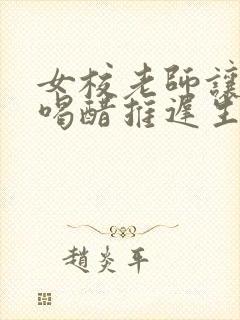 女校老師讓
喝醋推遲生
趙炎平